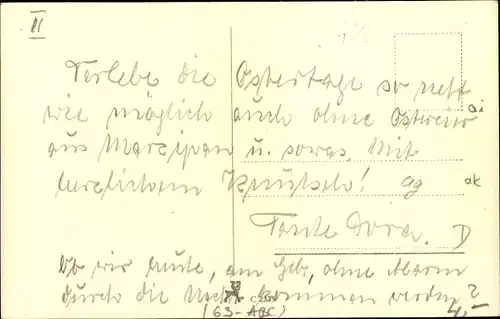 II
Verlebe die Ostertage so nett
wie möglich auch ohne Ostereier
aus Marzipan u. sowas. Mit
herzlichem Knutsch! ag
Tante Dora. D
Ob wir heute, am Geb., ohne Alarm
durch die Nacht kommen werden?
(63-ABC)
4,-